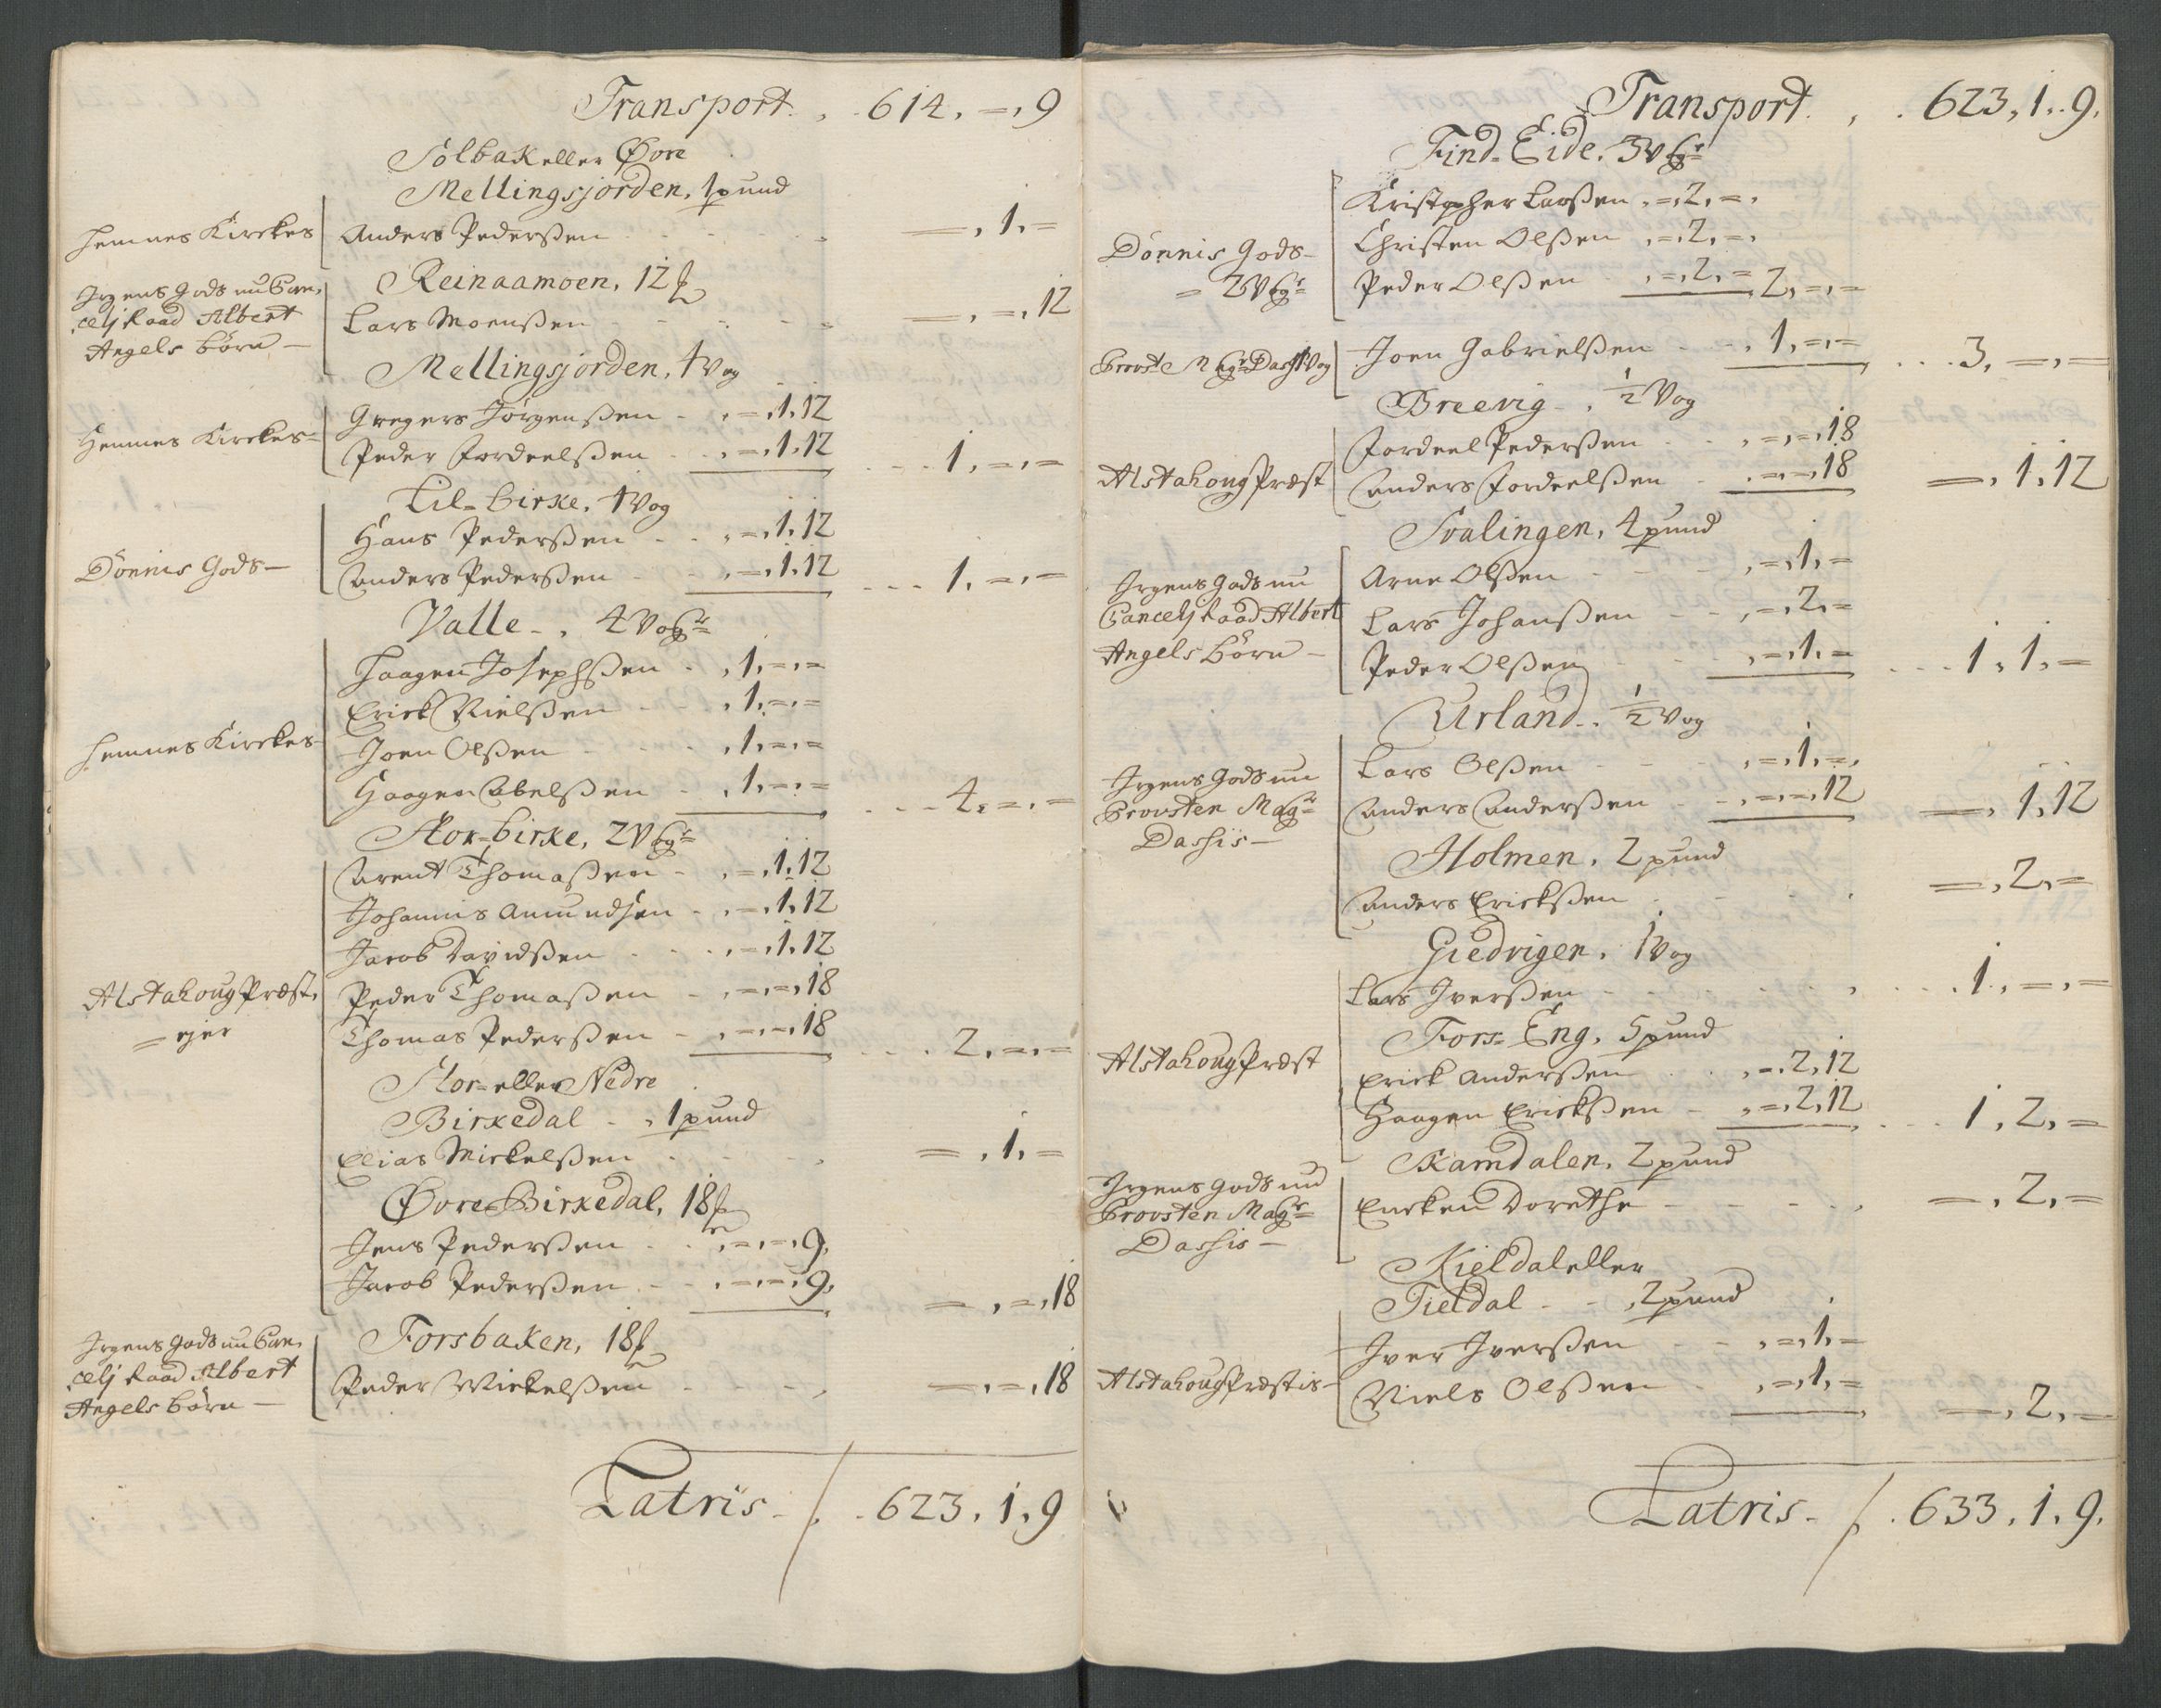 Transport . . 614. =. 9
Solbak eller Øvre
Mellingsjorden. 1 pund
Hemnes Kirckes
Anders Pederßen =. 1. =
Reinaamoen. 12 ℔
Irgens Gods nu Can,
celj Raad Albert
Angels börn –
Lars Monsßen =. =. 12
Mellingsjorden. 1 Vog
Hemnes Kirckes =
Gregers Jörgenßen - . =. 1. 12
Peder Jordeelßen . . =. 1. 12 . . . 1. =. =
Lil=birke. 1 Vog
Dönnis Gods –
Hans Pederßen - . . =. 1. 12
Anders Pederßen . =. 1. 12 . . . 1. =. =
Valle - . 4 Vogr
Hemnes Kirckes -
Haagen Josephßen - . 1. =. =
Erick Nielßen - . 1. =. =
Joen Olßen - . 1. =. =
Haagen Abelßen - . 1. =. = . . . 4. =. =
Stor=birke. 2 Vogr
Alstahoug Præst,
= ejer
Arent Thomaßen - . =. 1. 12
Johannis Amundsen - . =. 1. 12
Jacob Davidßen . . =. 1. 12
Peder Thomaßen - . =. =. 18
Thomas Pederßen - . =. =. 18 . . . 2. =. =
Stor= eller Nedre
Birkedal - . 1 pund
Elias Mickelßen =. 1. =
Øvre=Birkedal. 18 ℔
Jens Pederßen . . =. =. 9.
Jacob Pederßen - . =. =. 9. =. =. 18
Forsbaken. 18 ℔
Irgens Gods nu Can,
celj Raad Albert
Angels börn –
Peder Mickelßen =. =. 18
Latris - / . 623. 1. 9
Transport . . 623. 1. 9.
Find=Eide. 3 Vogr
Dönnis Gods –
= 2 Vogr
Kristopher Larßen . =. 2. =.
Christen Olßen . =. 2. =.
Peder Olßen . =. 2. = 2. =. =
Provst Magr Dass 1 Vog
Joen Gabrielßen - . 1. =. = . . . 3. =. =
Breevig - . ½ Vog
Alstahoug Præst
Jordeel Pederßen . . =. =. 18
Anders Jordeelßen . =. =. 18 =. 1. 12
Svalingen. 4 pund
Irgens Gods nu
Cancelj Raad Albert
Angels börn –
Arne Olßen . =. 1. =
Lars Johanßen . =. 2. =
Peder Olßen . =. 1. = . . . 1. 1. =
Urland . . ½ Vog
Irgens Gods nu
Provsten Magr
Dassis –
Lars Olßen - . =. 1. =.
Anders Anderßen . =. =. 12 =. 1. 12
Holmen. 2 pund
Anders Erickßen =. 2. =
Giedrigen. 1 Vog
Lars Iverßen . . . 1. =. =
Fors=Eng. 5 pund
Alstahoug Præst
Erick Anderßen . =. 2. 12
Haagen Erickßen - . =. 2. 12 . . . 1. 2. =
Kamdalen. 2 pund
Irgens Gods nu
Provsten Magr
Dassis –
Encken Dorethe =. 2. =
Kieldal eller
Tieldal - - . 2 pund
Alstahoug Præstis -
Iver Iverßen . =. 1. =
Niels Olßen . =. 1. = =. 2. =
Latris - / . 633. 1. 9.